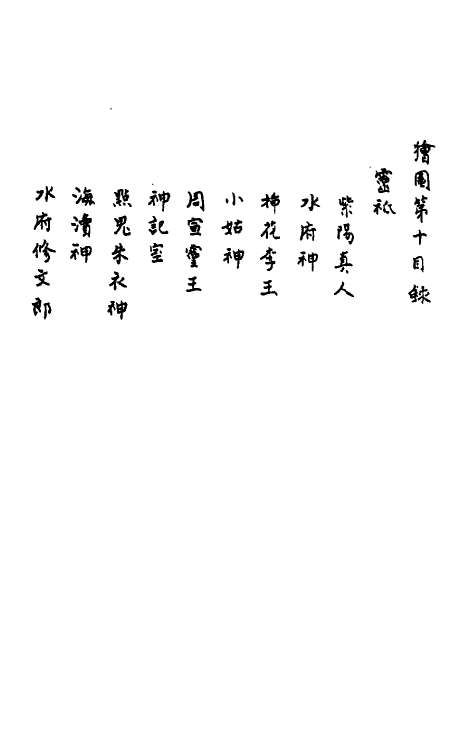 繪圖第十目錄
靈祇
紫陽真人
水府神
柿花李王
小姑神
周宣靈王
神記室
點鬼朱衣神
海瀆神
水府修文郎